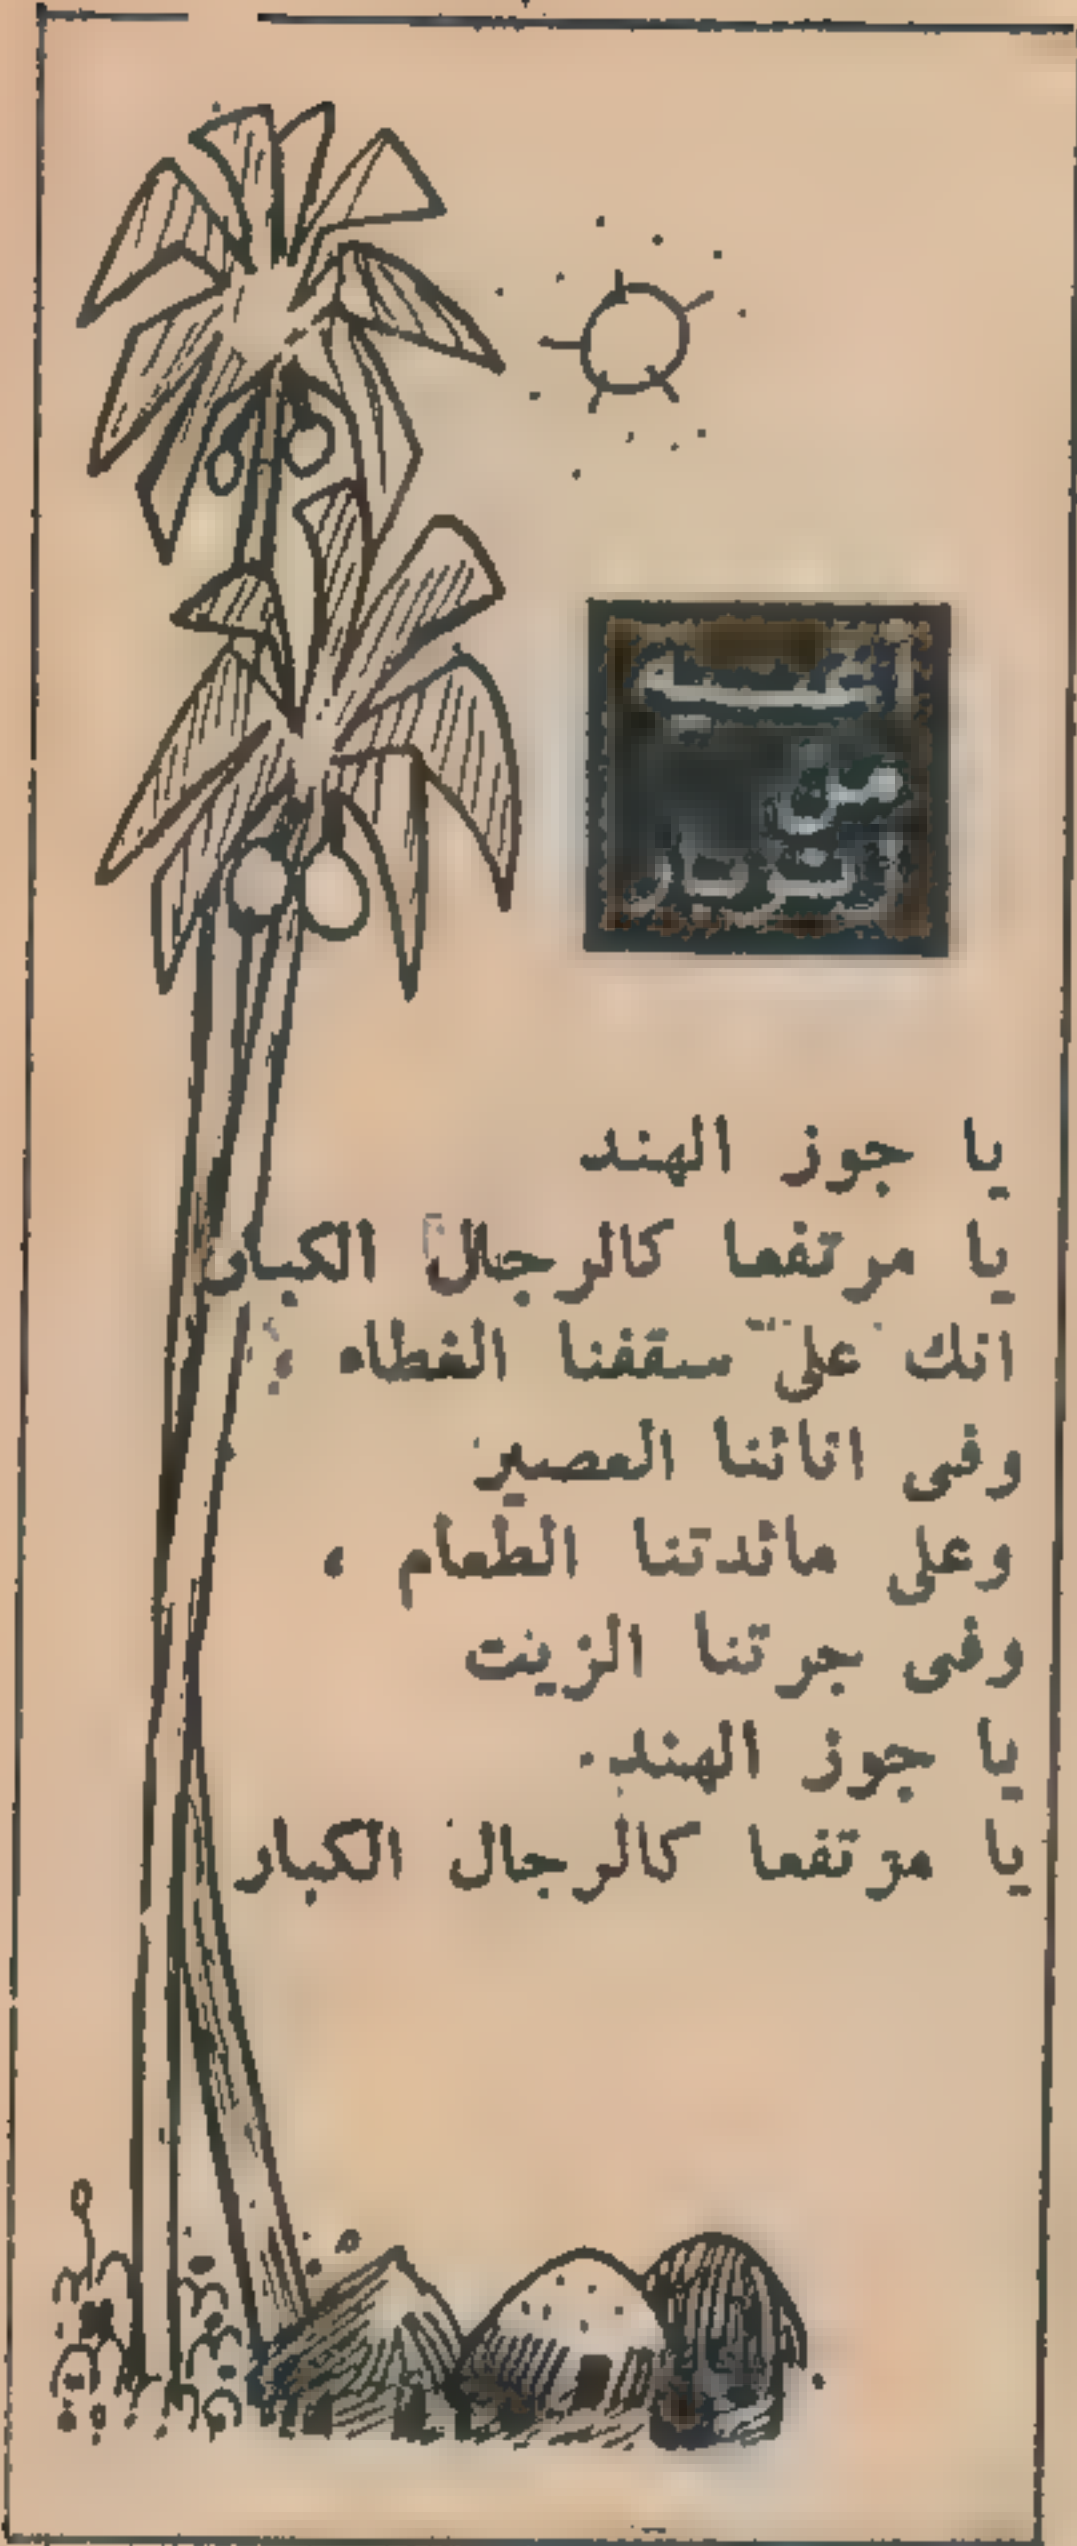 يا جوز الهند
يا مرتفعا كالرجال الكبار
انك على سقفنا الغطاء
وفى اناثنا العصير
وعلى مائدتنا الطعام ،
وفى جرتنا الزيت
يا جوز الهند.
يا مرتفعا كالرجال الكبار